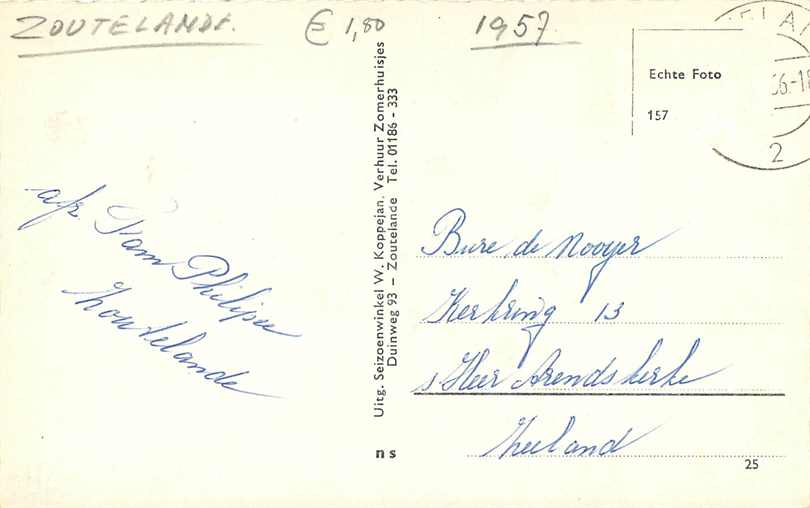 ZOUTELANDE.
€ 1,80
1957
Echte Foto
157
56.-18
2
afz. Fam Philipse
Zoutelande
Uitg. Seizoenwinkel W. Koppejan, Verhuur Zomerhuisjes
Duinweg 93 - Zoutelande Tel. 01186 - 333
Bure de Nooyer
Kerkring 13
s Heer Arendskerke
Zeeland
n s
25